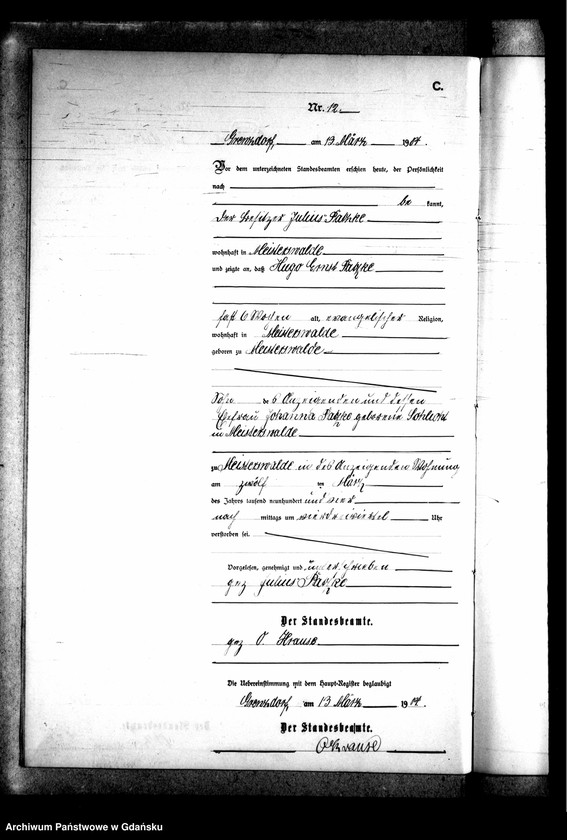 C.
Nr. 12.
Grenzdorf, am 13 März 1904.
Vor dem unterzeichneten Standesbeamten erschien heute, der Persönlichkeit
nach
be kannt,
der Besitzer Julius
wohnhaft in Meisterswalde
und zeigte an, daß Hugo Ernst
fast 6 Wochen alt, evangelischer Religion,
wohnhaft in Meisterswalde
geboren zu Meisterswalde
Sohn des Anzeigenden und dessen
Ehefrau Johanna geborene
in Meisterswalde
zu Meisterswalde in des Anzeigenden Wohnung
am zwölf ten März
des Jahres tausend neunhundert und vier
nach mittags um Uhr
verstorben sei.
Vorgelesen, genehmigt und unterschrieben
gez Julius
Der Standesbeamte.
gez O. Krause
Die Uebereinstimmung mit dem Haupt-Register beglaubigt
Grenzdorf, am 13 März 1904.
Der Standesbeamte.
O Krause
Archiwum Państwowe w Gdańsku